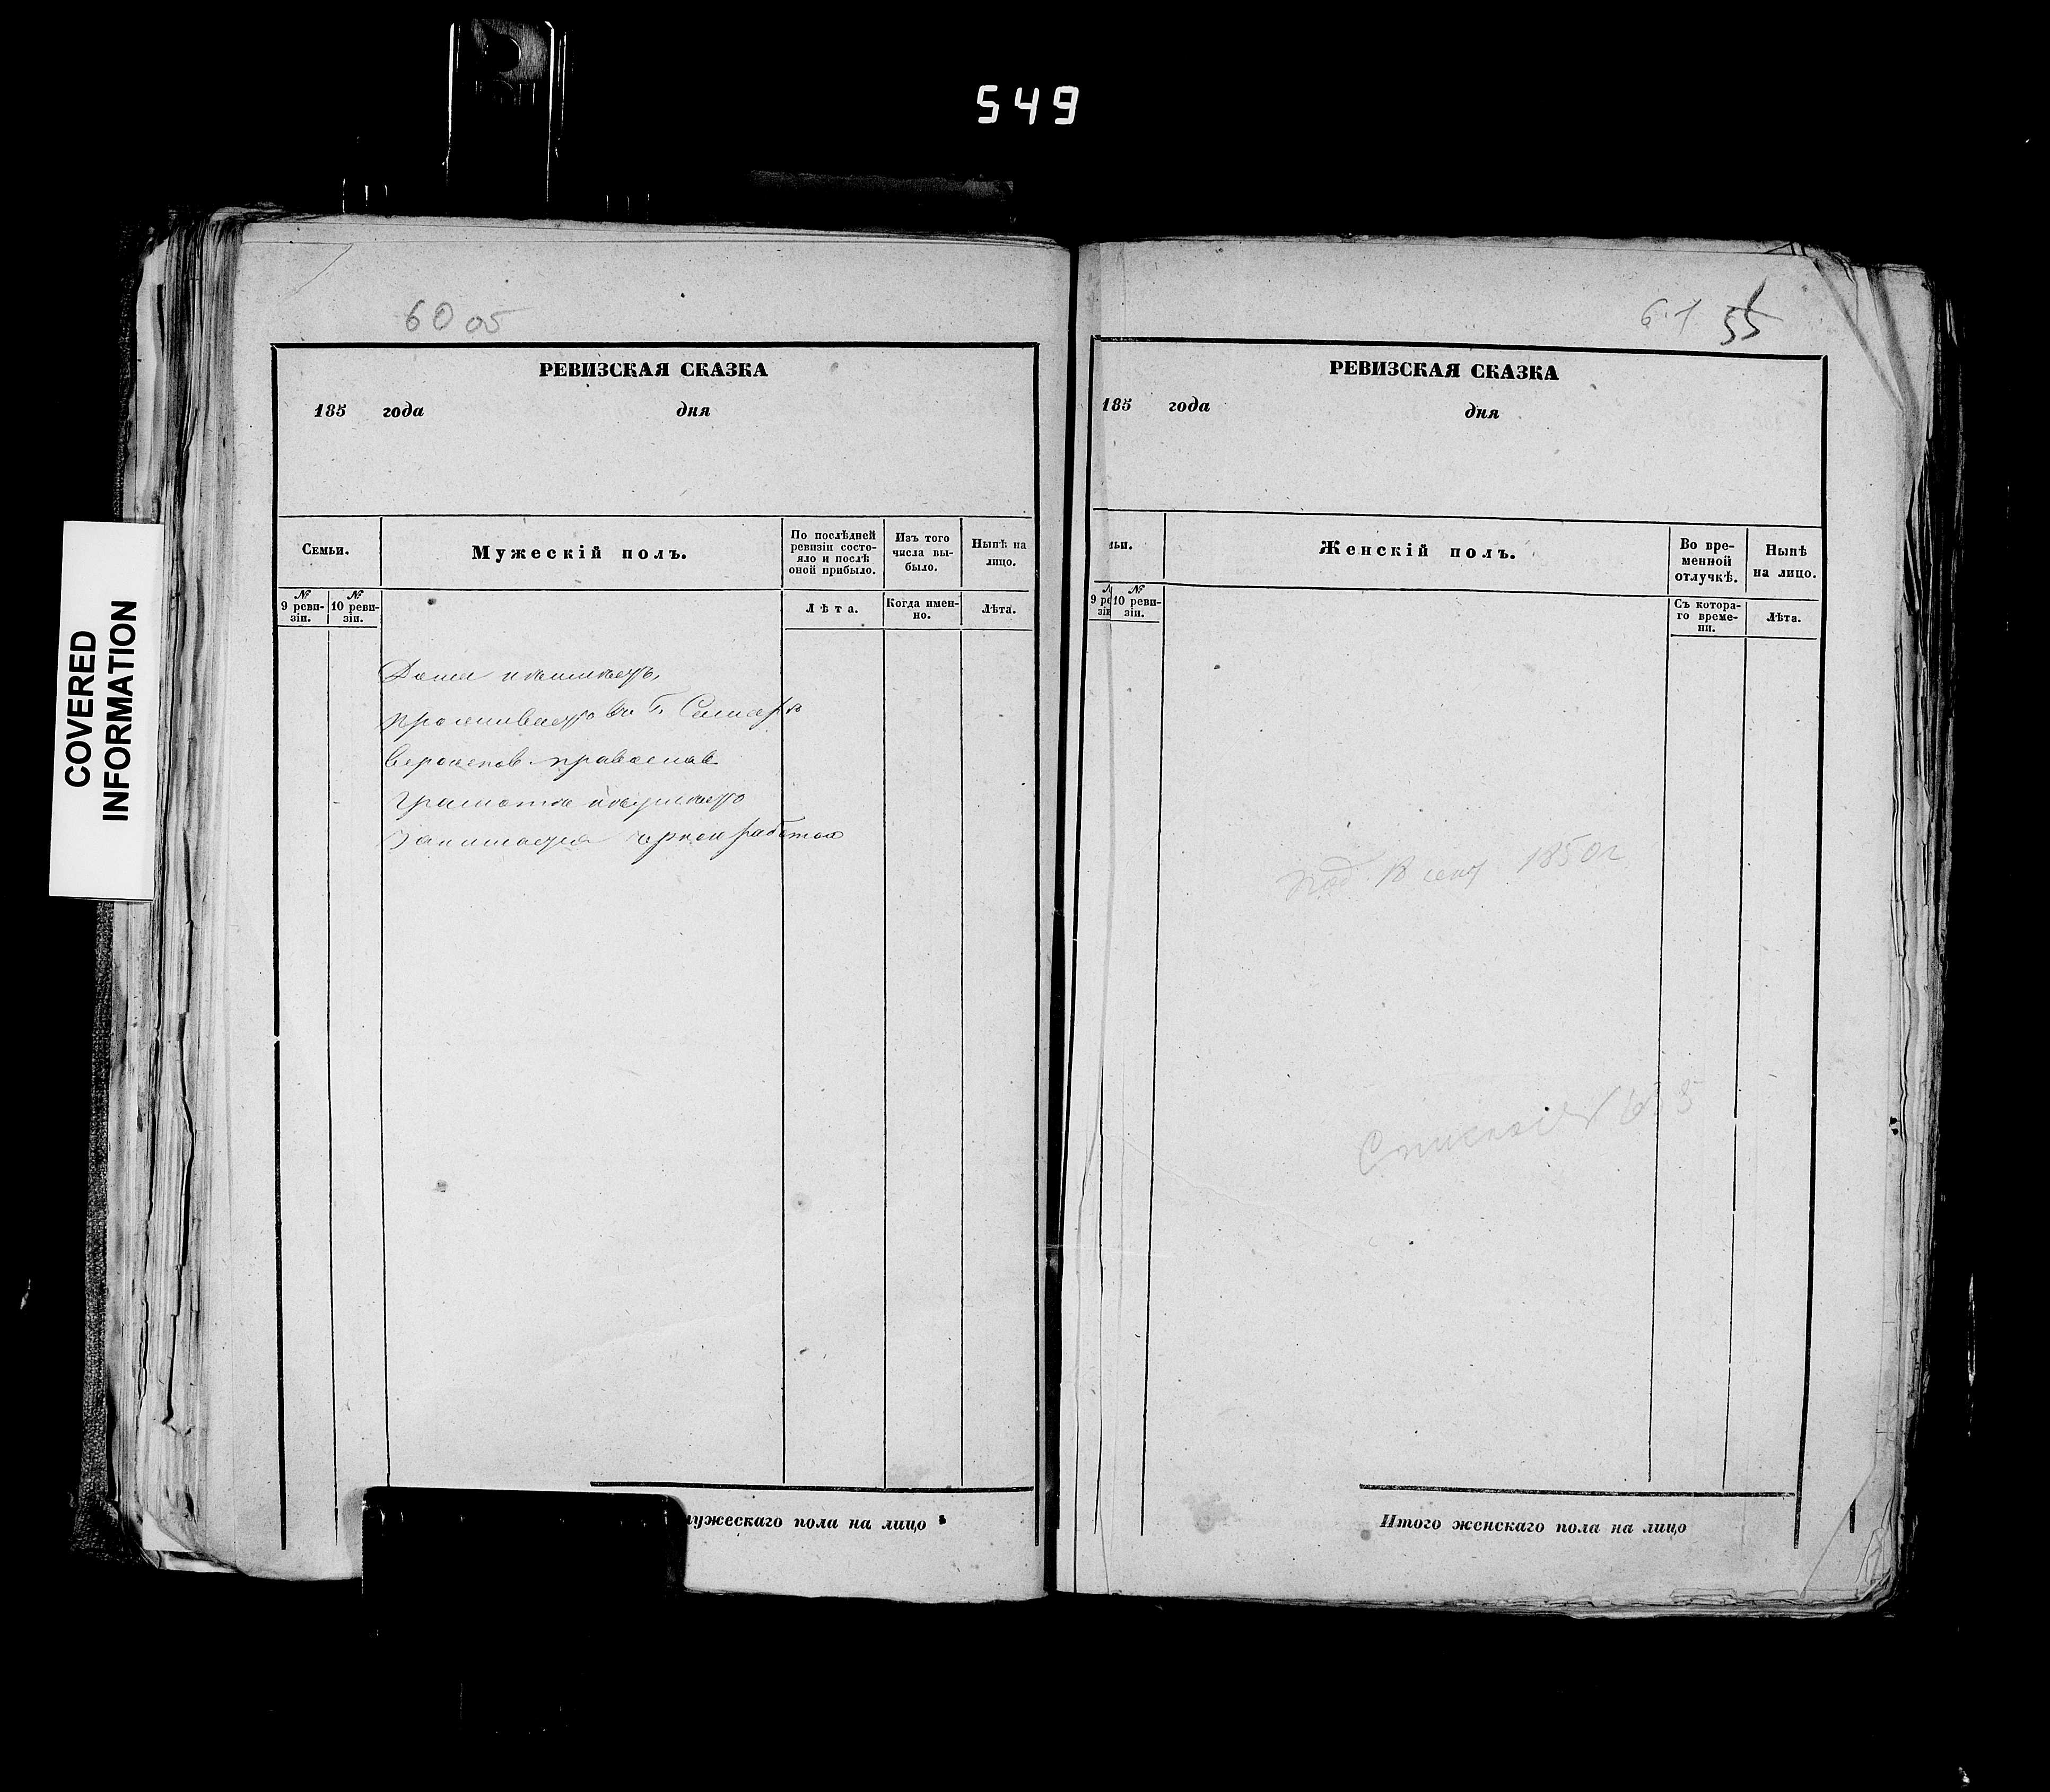 549
COVERED
INFORMATION
60 об
РЕВИЗСКАЯ СКАЗКА
185 года дня
Семьи.
Мужескій полъ.
По послѣдней
ревизіи состо-
яло и послѣ
оной прибыло.
Изъ того
числа вы-
было.
Нынѣ на
лицо.
№
9 реви-
зіи.
№
10 реви-
зіи.
Лѣта.
Когда имен-
но.
Лѣта.
Дома неимѣетъ,
проживаетъ въ Г. Самарѣ
вероисков. православ
грамотѣ неумѣетъ
занимается черной работой
мужескаго пола на лицо
61 55
РЕВИЗСКАЯ СКАЗКА
185 года дня
ьи.
Женскій полъ.
Во вре-
менной
отлучкѣ.
Нынѣ
на лицо.
9 ре
зіи
№
10 реви-
зіи.
Съ котора-
го време-
ни.
Лѣта.
1850 г
Итого женскаго пола на лицо